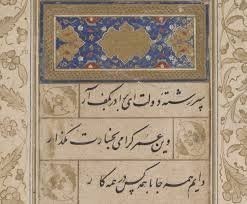 سررشته دولت ای برادر بکف آر
وین عمر گرامی بخسارت مگذار
دایم همه جا با همه کس در همه کار